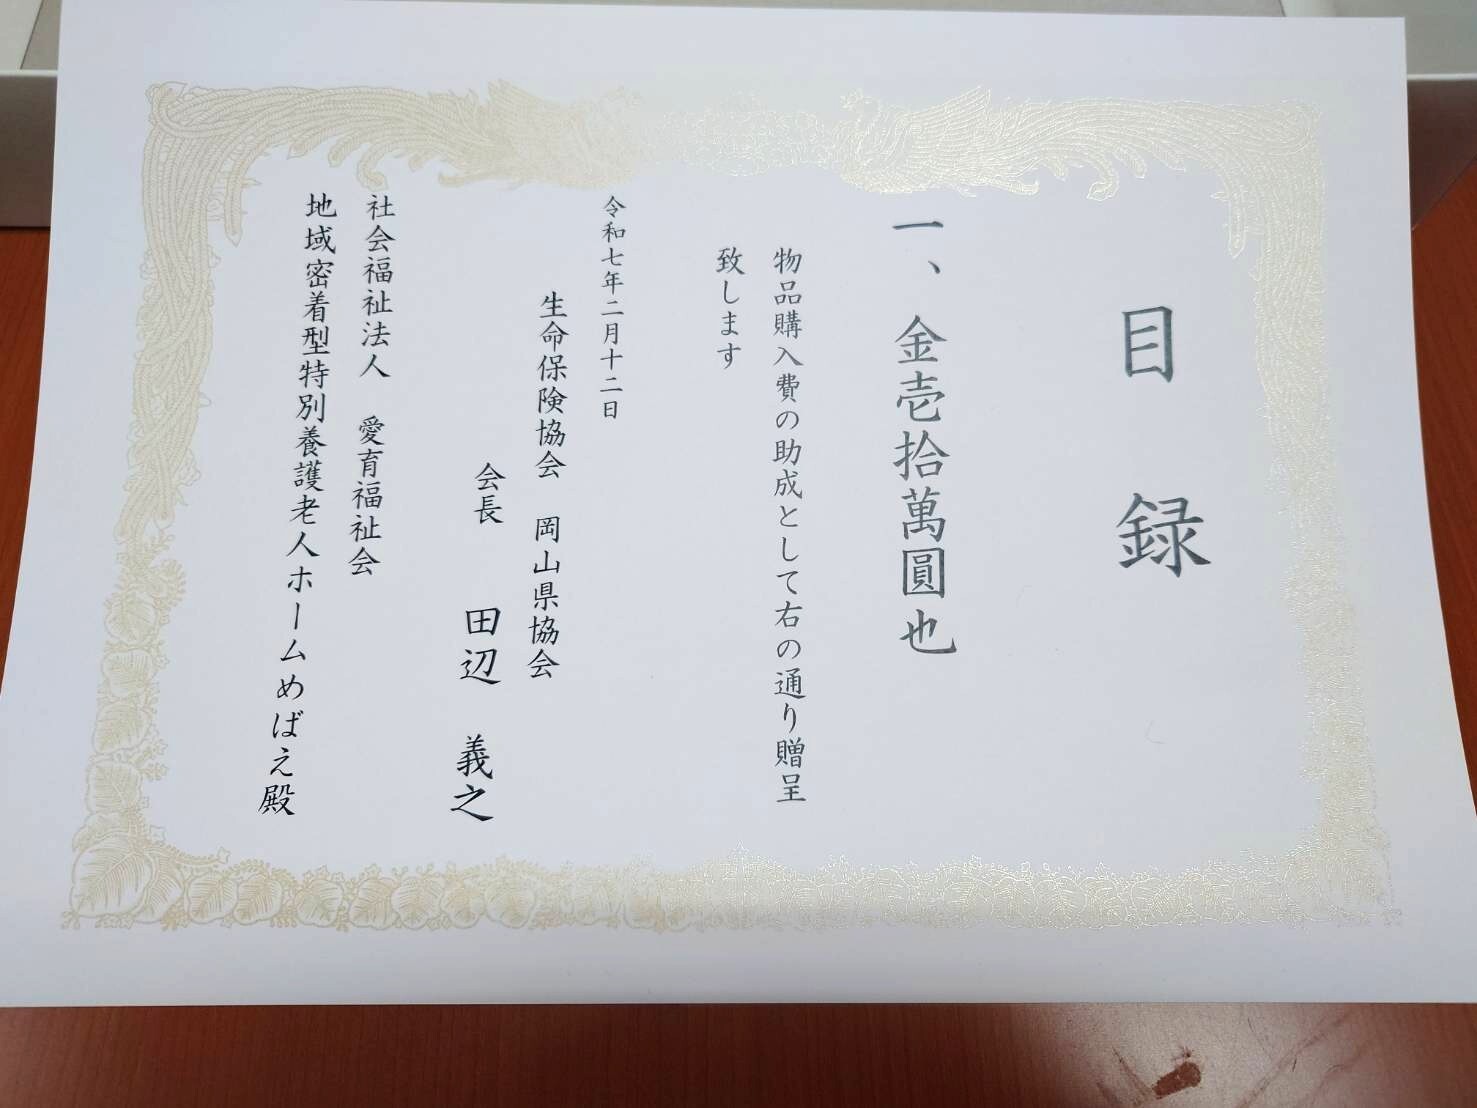 目録
一、金壱拾萬圓也
物品購入費の助成として右の通り贈呈
致します
令和七年二月十二日
生命保険協会 岡山県協会
会長 田辺 義之
社会福祉法人 愛育福祉会
地域密着型特別養護老人ホームめばえ殿